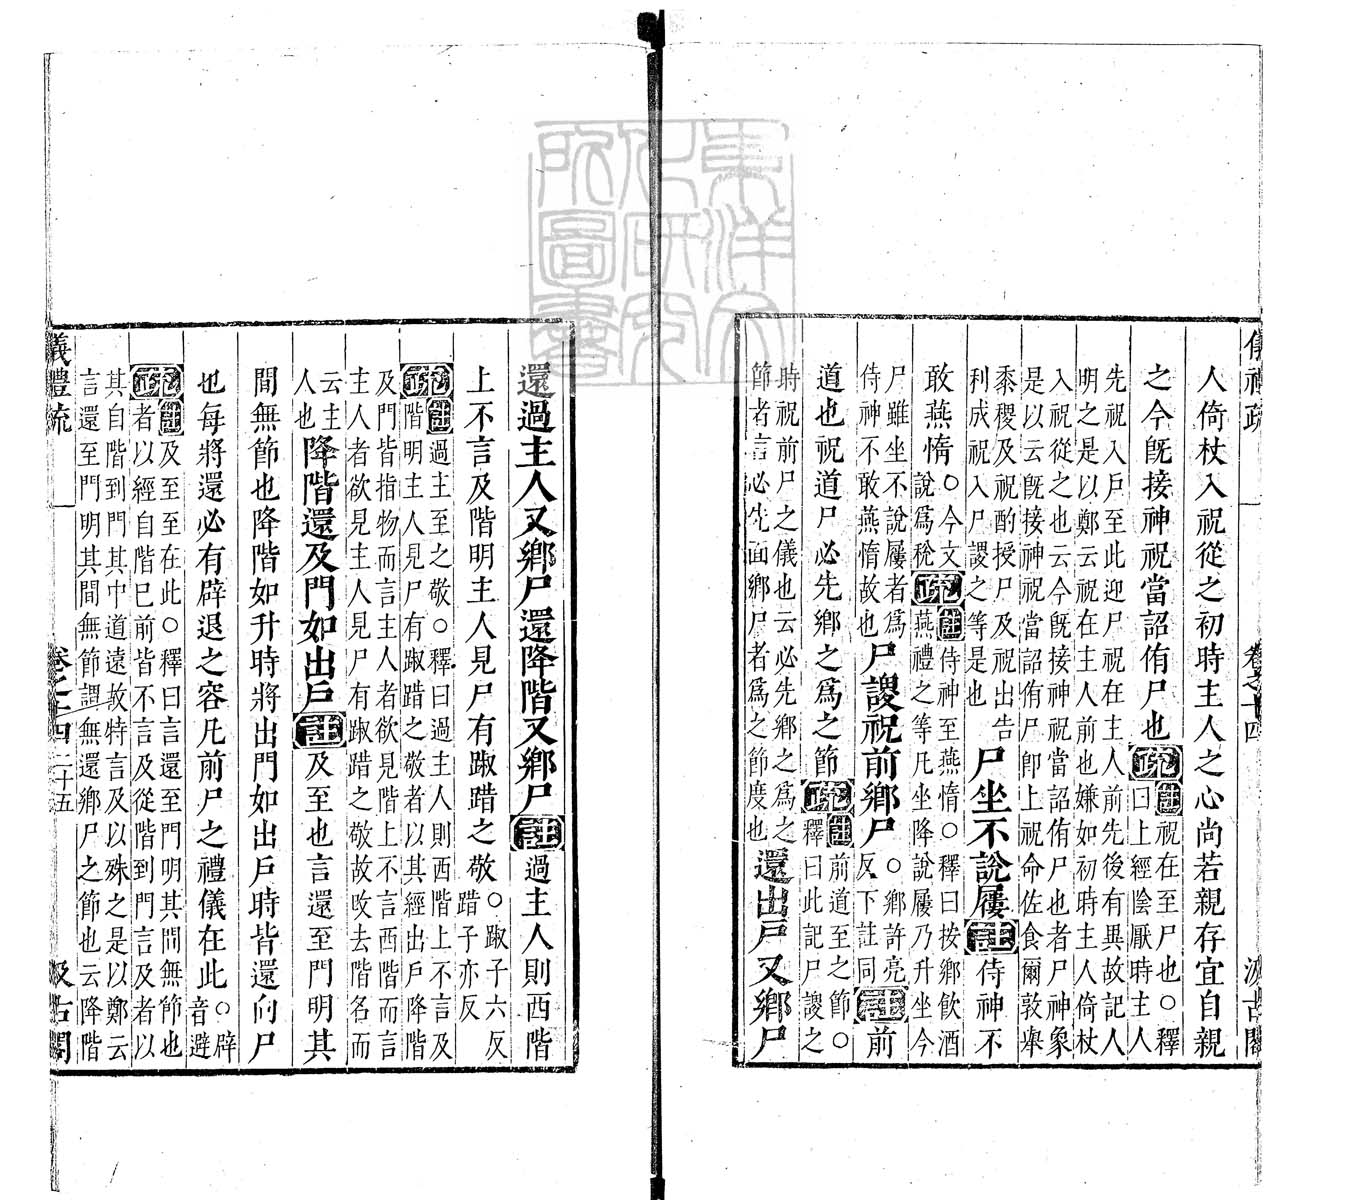 儀禮疏 卷之十四 汲古閣
人倚杖入祝從之初時主人之心尚若親存宜自親
之今旣接神祝當詔侑尸也疏註祝在至尸也○釋曰上經陰厭時主人
先祝入戶至此迎尸祝在主人前先後有異故記人
明之是以鄭云祝在主人前也嫌如初時主人倚杖
入祝從之也云今旣接神祝當詔侑尸也者尸神象
是以云旣接神祝當詔侑尸卽上祝命佐食爾敦舉
黍稷及祝酌授尸及祝出告
利成祝入尸謖之等是也尸坐不說屨註侍神不
敢燕惰○今文說爲稅疏註侍神至燕惰○釋曰按鄉飲酒
燕禮之等凡坐降說屨乃升坐今
尸雖坐不說屨者爲
侍神不敢燕惰故也尸謖祝前鄉尸○鄉許亮反下註同註前
道也祝道尸必先鄉之爲之節疏註前道至之節○
釋曰此記尸謖之
時祝前尸之儀也云必先鄉之爲之
節者言必先面鄉尸者爲之節度也還出戶又鄉尸
還過主人又鄉尸還降階又鄉尸註過主人則西階
上不言及階明主人見尸有踧踖之敬○踧子六反踖子亦反
疏註過主至之敬○釋曰過主人則西階上不言及
階明主人見尸有踧踖之敬者以其經出戶降階
及門皆指物而言主人者欲見階上不言西階而言
主人者欲見主人見尸有踧踖之敬故攺去階名而
云主
人也降階還及門如出戶註及至也言還至門明其
間無節也降階如升時將出門如出戶時皆還向尸
也每將還必有辟退之容凡前尸之禮儀在此○辟音避
疏註及至至在此○釋曰言還至門明其間無節也
者以經自階已前皆不言及從階到門言及者以
其自階到門其中道遠故特言及以殊之是以鄭云
言還至門明其間無節謂無還鄉尸之節也云降階
儀禮疏 卷之十四 二十五 汲古閣
東洋文
化研究
所圖書